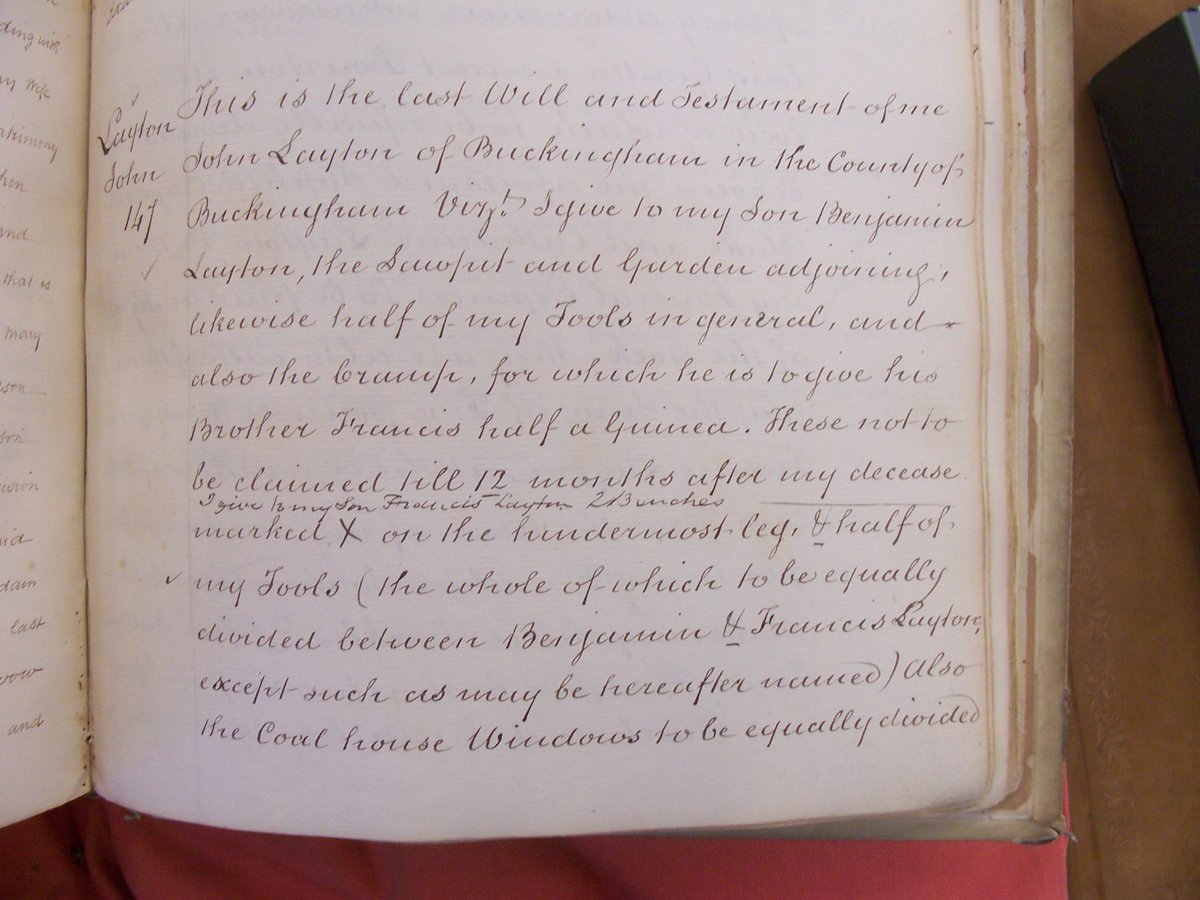 ding wife
my Wife
atrimony
hen
and
that is
Mary
son
son
aid
dam
last
and
Layton
John
147
This is the last Will and Testament of me
John Layton of Buckingham in the County of
Buckingham Vizt. I give to my Son Benjamin
Layton, the Sawpit and Garden adjoining,
likewise half of my Tools in general, and
also the Cramp, for which he is to give his
Brother Francis half a Guinea. These not to
be claimed till 12 months after my decease
I give to my Son Francis Layton 2 inches
marked X on the hindermost leg, & half of
my Tools (the whole of which to be equally
divided between Benjamin & Francis Layton,
except such as may be hereafter named) Also
the Coal house Windows to be equally divided